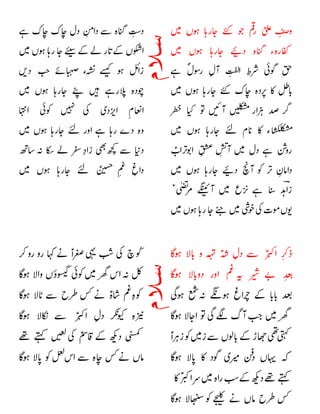 سلام
وصفِ علی رقم جو کئے جا رہا ہوں میں
کفارہء گناہ دیئے جا رہا ہوں میں
حق گوئی شرطِ الفتِ آلِ رسول ہے
باطل کا پردہ چاک کئے جا رہا ہوں میں
گر صد ہزار مشکلیں آئیں تو کیا خطر
مشکلکشاء کا نام لئے جا رہا ہوں میں
روشن ہے دل میں آتشِ عشقِ ابوتراب
دامانِ تر کو آنچ دیئے جا رہا ہوں میں
زاہد سنا ہے نزع میں آئینگے مرتضیٰ
یوں موت کی خوشی میں جئے جا رہا ہوں میں
دستِ گناہ سے دامنِ دل چاک چاک ہے
اشکوں کے تار لے کے سیئے جا رہا ہوں میں
زائل ہو کیسے نشہء صہبائے حب دیں
چودہ پلا رہے ہیں پئے جا رہا ہوں میں
انعام ایزدی کی کوئی نہیں انتہا
وہ دے رہا ہے اور لئے جا رہا ہوں میں
دنیا سے کچھ بھی زادِ سفر لے سکا نہ ساتھ
داغِ غمِ حسین لئے جا رہا ہوں میں
سلام
ذکرِ اکبر سے دلِ شہ تہہ و بالا ہوگا
بعدِ بے شیر یہ غم اور دوبالا ہوگا
بعد بابا کے چراغ ہونگے نہ شمع ہوگی
گھر میں جب آگ لگے گی تو اجالا ہوگا
کہتی تھی جھاڑ کے بالوں سے زمیں کو زہرا
کہ یہاں دفن میری گود کا پالا ہوگا
کہتے تھے دیکھ کے سب راہ میں سر اکبر کا
کس طرح ماں نے کلیجے کو سنبھالا ہوگا
کوچ کی شب یہی صغرا نے کہا رو رو کر
کل نہ اس گھر میں کوئی گیسوؤں والا ہوگا
کوہِ غم شاہ نے کس طرح سے ٹالا ہوگا
نیزہ کیونکر دلِ اکبر سے نکالا ہوگا
کمسنی دیکھ کے قاسم کی لعیں کہتے تھے
ماں نے کس چاہ سے اس لعل کو پالا ہوگا